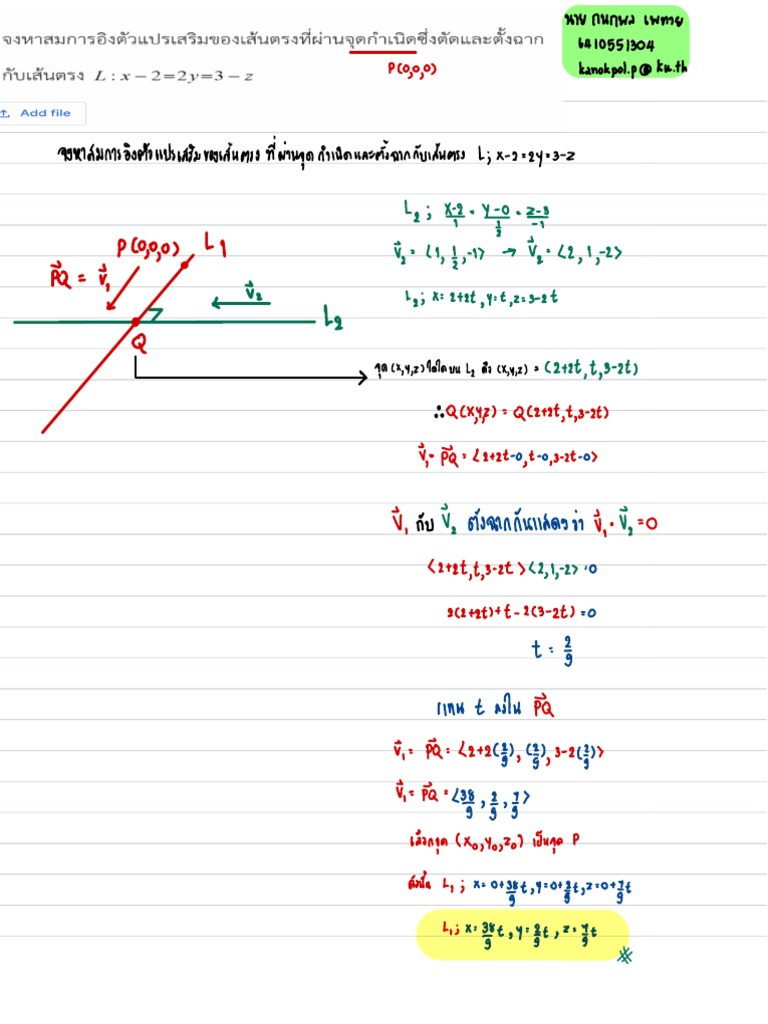 นาย กนกพล เพทาย
6410551304
kanokpol.p@ku.th
จงหาสมการอิงตัวแปรเสริมของเส้นตรงที่ผ่านจุดกำเนิดซึ่งตัดและตั้งฉาก
P(0,0,0)
กับเส้นตรง L : x − 2=2y=3 − z
Add file
จงหาสมการอิงตัวแปรเสริมของเส้นตรง ที่ผ่านจุดกำเนิดและตั้งฉากกับเส้นตรง L; x-2=2y=3-z
L₂ ; x-2/1 = y-0/½ = z-3/-1
v⃗₂ = <1, ½, -1> → v⃗₂ = <2, 1, -2>
L₂ ; x = 2+2t, y=t, z=3-2t
P(0,0,0) L₁
PQ⃗ = v⃗₁
v⃗₂
L₂
Q
จุด (x,y,z) ใดใดบน L₂ คือ (x,y,z) = (2+2t, t, 3-2t)
∴Q(x,y,z) = Q(2+2t, t, 3-2t)
v⃗₁ = PQ⃗ = <2+2t-0, t-0, 3-2t-0>
v⃗₁ กับ v⃗₂ ตั้งฉากกันแสดงว่า v⃗₁ · v⃗₂ = 0
<2+2t, t, 3-2t> <2, 1, -2> = 0
2(2+2t)+t-2(3-2t) = 0
t = 2/9
แทน t ลงใน PQ⃗
v⃗₁ = PQ⃗ = <2+2(2/9), (2/9), 3-2(2/9)>
v⃗₁ = PQ⃗ = <38/9, 2/9, 7/9>
เลือกจุด (x₀, y₀, z₀) เป็นจุด P
ดังนั้น L₁ ; x = 0+38/9t, y=0+2/9t, z=0+7/9t
L₁ ; x = 38/9t, y = 2/9t, z = 7/9t